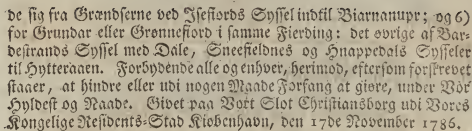 de sig fra Grændserne ved Isefiords Syssel indtil Biarnanupr; og 6)
for Grundar eller Grønnefiord i samme Fierding: det øvrige af Bar-
destrands Syssel med Dale, Sneefieldnes og Hnappedals Sysseler
til Hytteraaen. Forbydende alle og enhver, herimod, eftersom forskrevet
staaer, at hindre eller udi nogen Maade Forfang at giøre, under Vor
Hyldest og Naade. Givet paa Vort Slot Christiansborg udi Vores
Kongelige Residents-Stad Kiøbenhavn, den 17de November 1786.